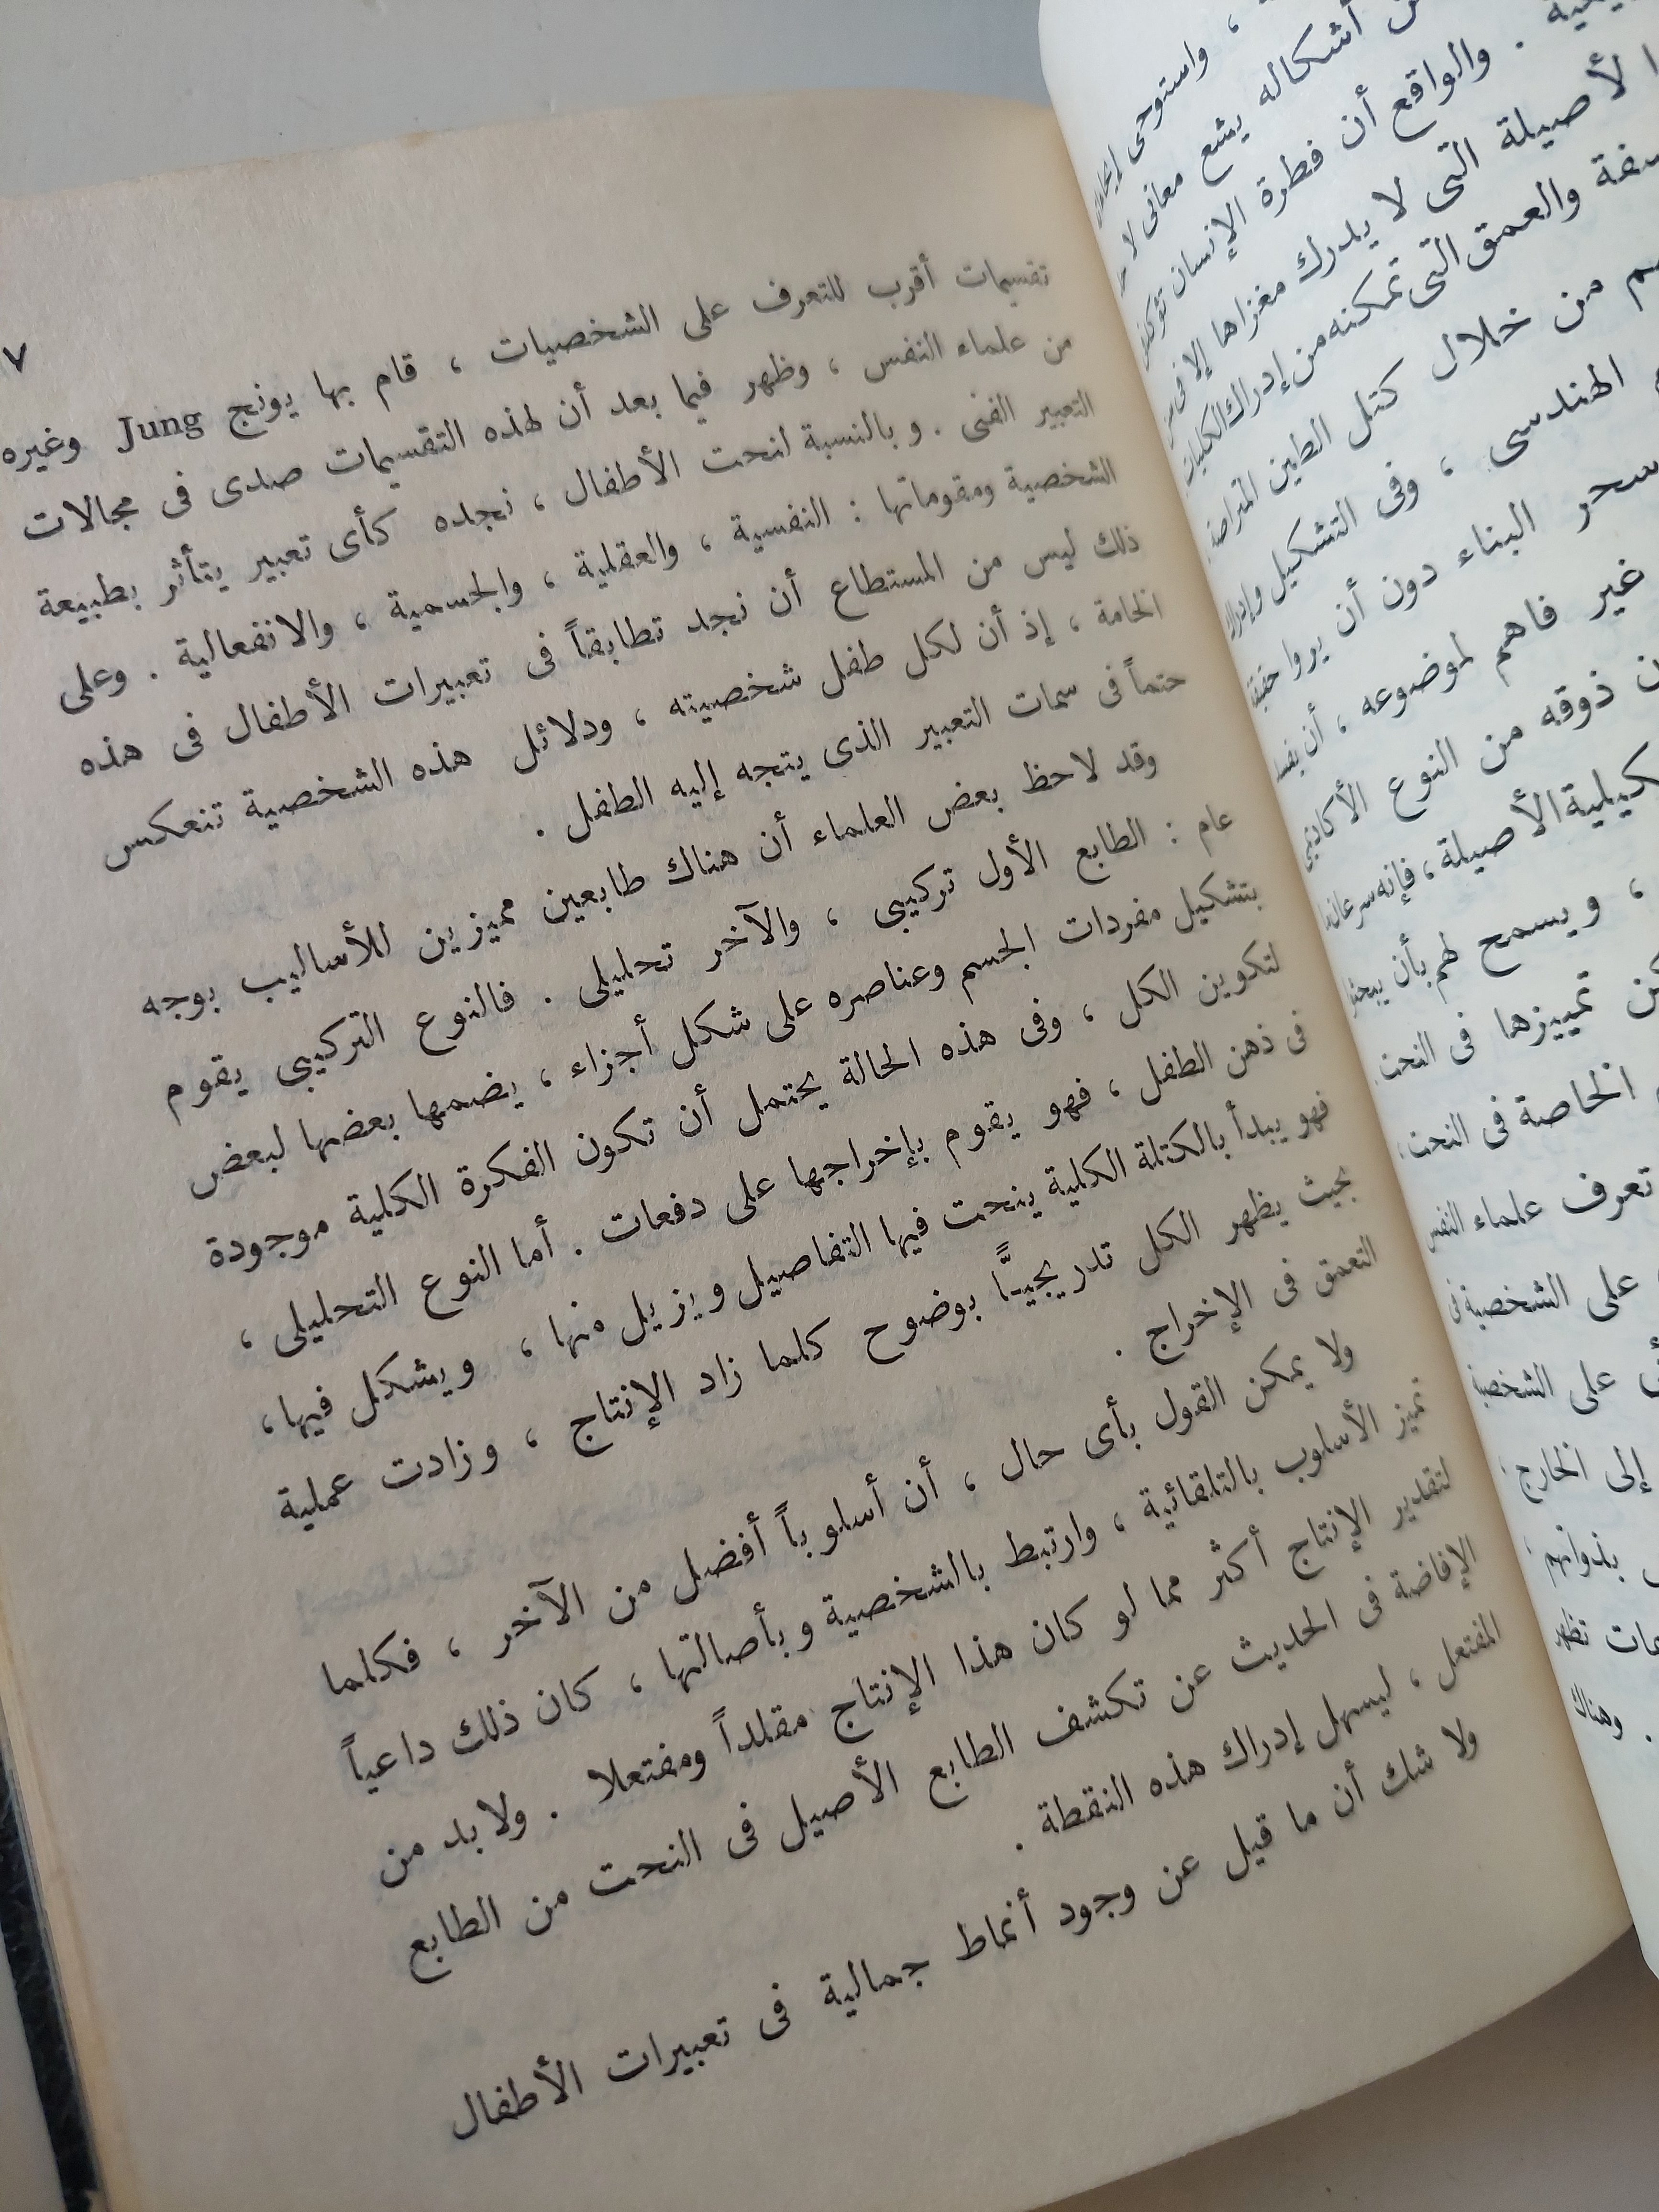 ، واستوحى
من أشكاله يشع معانى لا
والواقع أن فطرة الإنسان
الأصيلة التى لا يدرك مغزاها إلا فى
والعمق التى تمكنه من إدراك الكليات
من خلال كتل الطين المتراصة
الهندسى ، وفى التشكيل وإدراك
سحر البناء دون أن يروا
غير فاهم لموضوعه ، أن يفسد
ذوقه من النوع الأكاديمى
الأصيلة ، فإنه سرعان
، ويسمح لهم بأن يبحثوا
تمييزها فى النحت
الخاصة فى النحت
تعرف علماء النفس
على الشخصية فى
على الشخصية
إلى الخارج ؛
بذواتهم ؛
تظهر
. وهناك
٧
تقسيمات أقرب للتعرف على الشخصيات ، قام بها يونج Jung وغيره
من علماء النفس ، وظهر فيما بعد أن لهذه التقسيمات صدى فى مجالات
التعبير الفنى . وبالنسبة لنحت الأطفال ، نجده كأى تعبير يتأثر بطبيعة
الشخصية ومقوماتها : النفسية ، والعقلية ، والجسمية ، والانفعالية . وعلى
ذلك ليس من المستطاع أن نجد تطابقاً فى تعبيرات الأطفال فى هذه
الخامة ، إذ أن لكل طفل شخصيته ، ودلائل هذه الشخصية تنعكس
حتماً فى سمات التعبير الذى يتجه إليه الطفل .
وقد لاحظ بعض العلماء أن هناك طابعين مميزين للأساليب بوجه
عام : الطابع الأول تركيبى ، والآخر تحليلى . فالنوع التركيبى يقوم
بتشكيل مفردات الجسم وعناصره على شكل أجزاء ، يضمها بعضها لبعض
لتكوين الكل ، وفى هذه الحالة يحتمل أن تكون الفكرة الكلية موجودة
فى ذهن الطفل ، فهو يقوم بإخراجها على دفعات . أما النوع التحليلى ،
فهو يبدأ بالكتلة الكلية ينحت فيها التفاصيل ويزيل منها ، ويشكل فيها ،
بحيث يظهر الكل تدريجيًّا بوضوح كلما زاد الإنتاج ، وزادت عملية
التعمق فى الإخراج .
ولا يمكن القول بأى حال ، أن أسلوباً أفضل من الآخر ، فكلما
تميز الأسلوب بالتلقائية ، وارتبط بالشخصية وبأصالتها ، كان ذلك داعياً
لتقدير الإنتاج أكثر مما لو كان هذا الإنتاج مقلداً ومفتعلا . ولا بد من
الإفاضة فى الحديث عن تكشف الطابع الأصيل فى النحت من الطابع
المفتعل ، ليسهل إدراك هذه النقطة .
ولا شك أن ما قيل عن وجود أنماط جمالية فى تعبيرات الأطفال